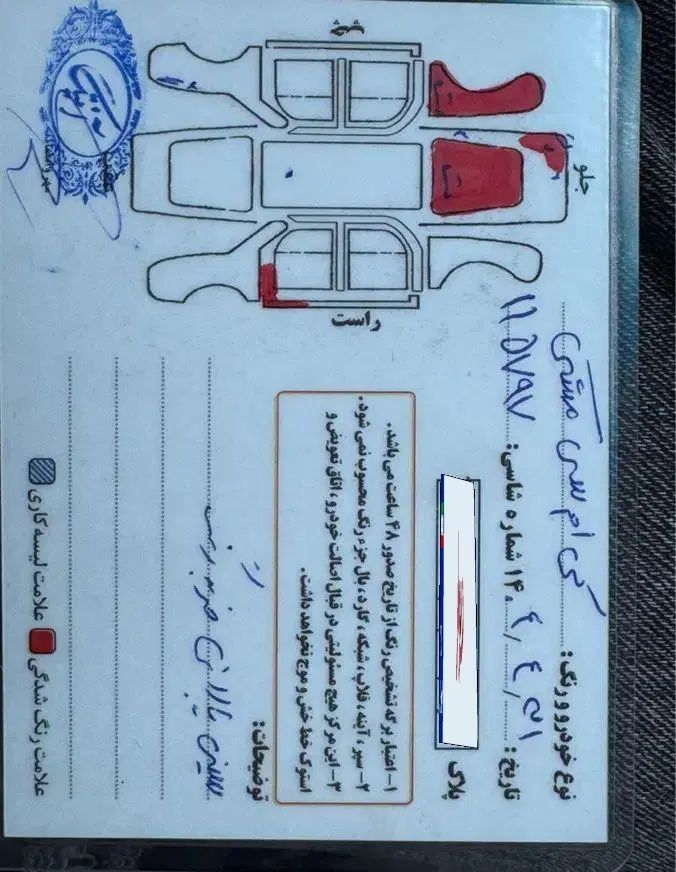 نوع خودرو و رنگ: کی ام سی مشکی
تاریخ: ۱۴۰۴/۴/۳۱ شماره شاسی: ۱۱۵۷۹۷
پلاک
۱- اعتبار برگه تشخیص رنگ از تاریخ صدور ۴۸ ساعت می باشد.
۲- سپر، آینه، قلاب، شبکه، گارد، بال جزء رنگ محسوب نمی شود.
۳- این مرکز هیچ مسئولیتی در قبال اصالت خودرو، اتاق تعویض و
استوک خط خش و موج نخواهد داشت.
توضیحات:
سینی پایین
علامت رنگ شدگی
علامت لیسه کاری
جلو
راست